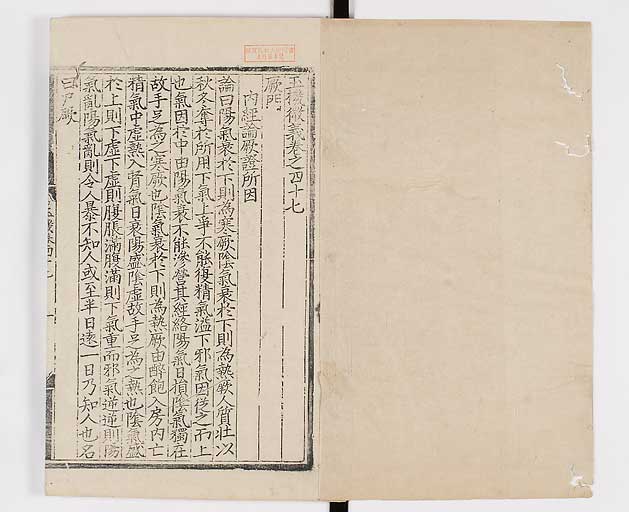 玉機微義卷之四十七
厥門
內經論厥證所因
論曰陽氣衰於下則為寒厥陰氣衰於下則為熱厥人質壯以
秋冬奪於所用下氣上爭不能復精氣溢下邪氣因從之而上
也氣因於中由陽氣衰不能滲營其經絡陽氣日損陰氣獨在
故手足為之寒厥也陰氣衰於下則為熱厥由醉飽入房內亡
精氣中虛熱入腎氣日衰陽盛陰虛故手足為之熱也陰氣盛
於上則下虛下虛則腹脹滿腹滿則下氣重而邪氣逆逆則陽
氣亂陽氣亂則令人暴不知人或至半日遠一日乃知人也名
曰尸厥